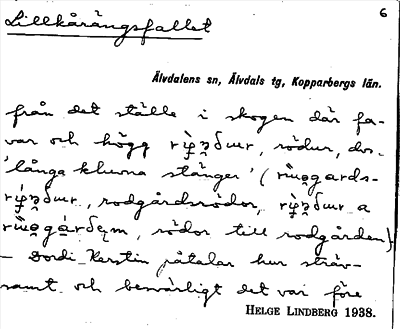 6
Lillkårängsfallet
Älvdalens sn, Älvdals tg, Kopparbergs län.
från det ställe i skogen där fa-
var och högg, rödur, dvs.
'långa kluvna stänger' (
, rodgårdsrödor, a
, rödor till rodgården)
– Dordi Kerstin påtalar hur sträv-
samt och besvärligt det var före
HELGE LINDBERG 1938.